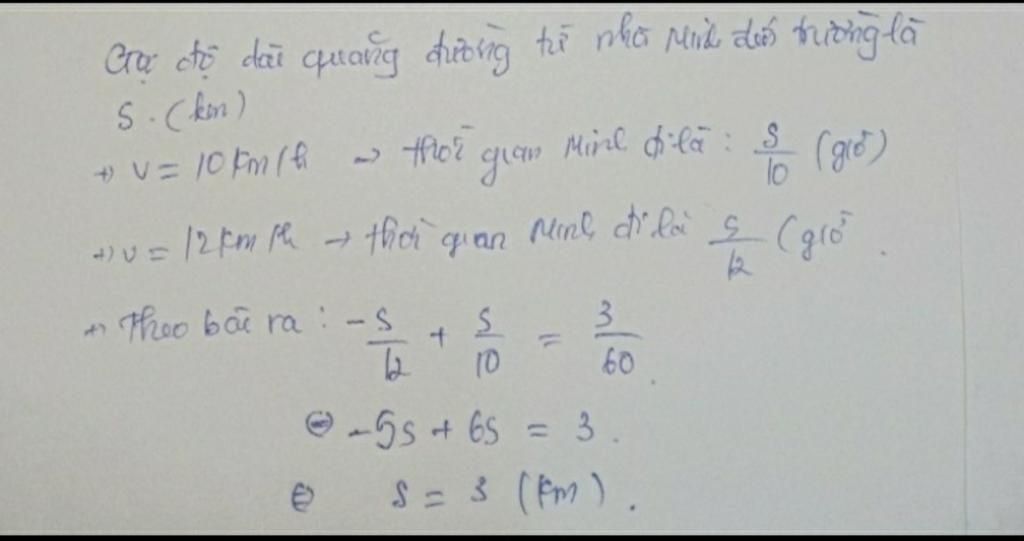 Gọi độ dài quãng đường từ nhà Minh đến trường là
S. (km)
+) v = 10 km/h → thời gian Minh đi là : S/10 (giờ)
+) v = 12 km/h → thời gian Minh đi là S/12 (giờ .
+) Theo bài ra : -S/12 + S/10 = 3/60 .
⇔ -5s + 6s = 3 .
⇔ s = 3 (km) .